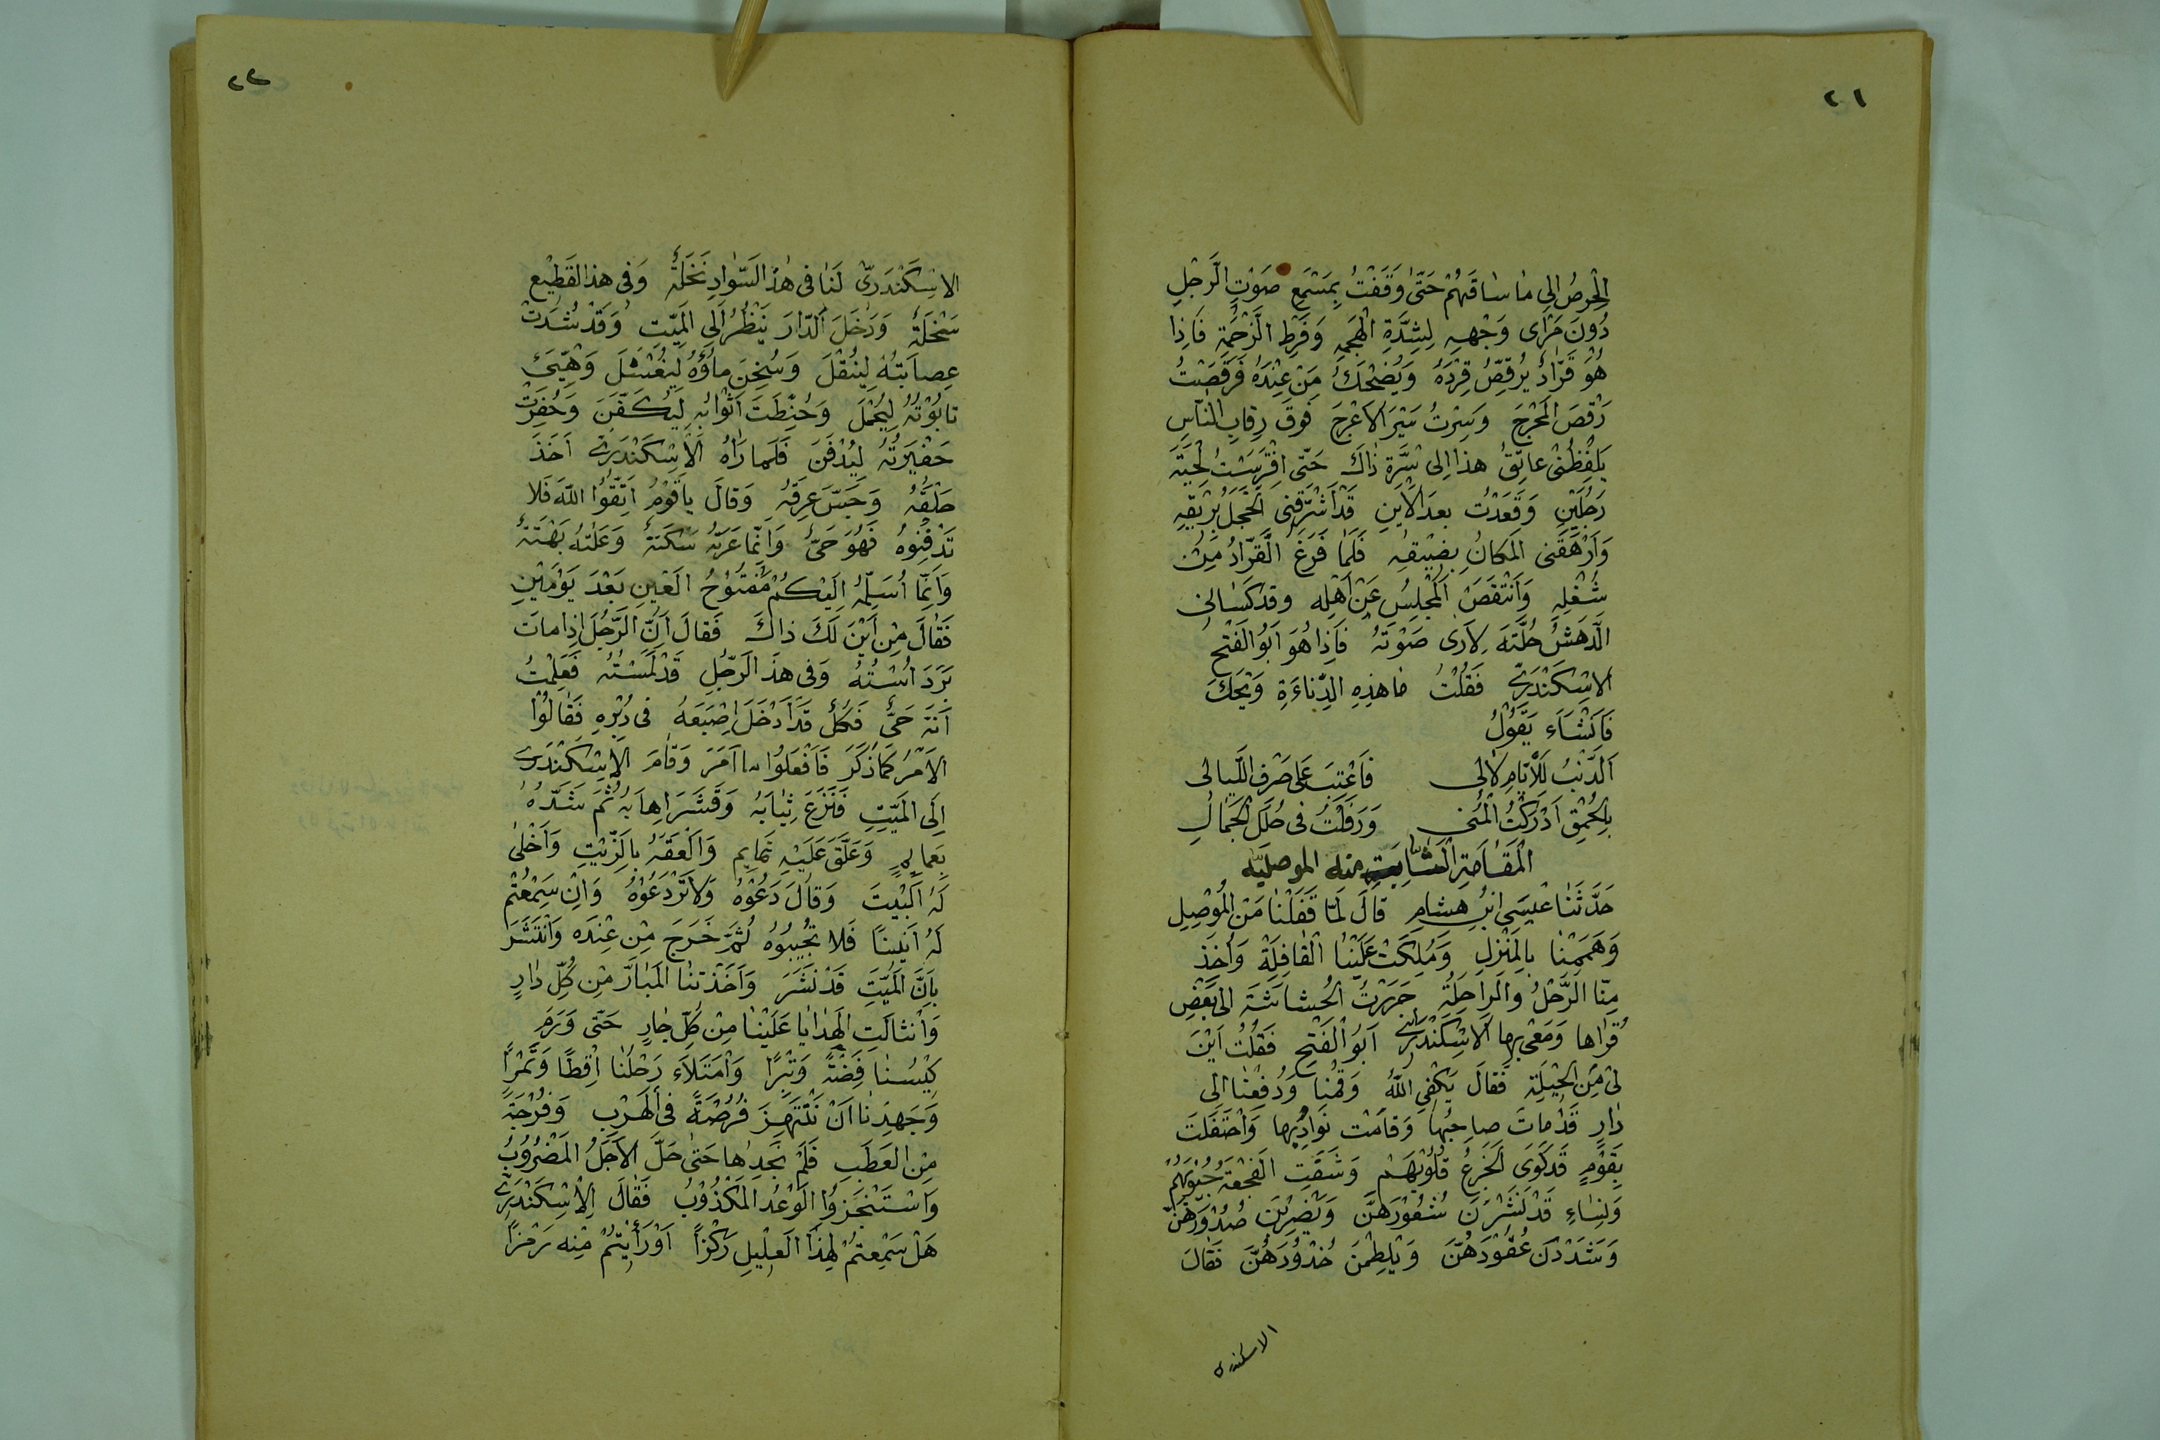 ٢١
الْحِرصُ اِلى مٰا سٰاقَهُمْ حَتّىٰ وَقَفْتُ بِمَسْمَعِ صَوْتِ الَرَجُلِ
دُونَ مَرْاى وَجْهِهِ لِشِدَّةِ الْهَجمِهِ وَفَرطِ الَزَحْمَةِ فَاِذا
هُوَ قَرّادُ يُرَقِّصُ قِرْدَهُ وَيُضْحَكُ مَنْ عِنْدَهُ فَرَقَصْتُ
رَقْصَ الْمَحْرَجِ وَسِرْتُ سَيْرَ الاَعْرجَ فَوقَ رِقابِ النّاسِ
يَلْفِظُنى عاتِقُ هذا اِلى سُرَّةِ ذاكَ حَتّى افْتَرَشْتُ لِحْيَةَ
رَجُلَيْنِ وَقَعَدْتُ بعدَ الْاَينِ قَدْ اَشْرَقَنى الْخَجَلُ بِرِيْقِهِ
وَاَرْهَقَنى المَكانُ بِضِيْقِهِ فَلَمّا فَرَغَ الْقَرّادُ مِنْ
شُغْلِهِ وَاَنْتَفَضَ الْمَجْلِسُ عَنْ اَهْلِه وقد كَسانى
الَّدَهَشُ حُلَّتَهَ لِاَرى صَوْتَهُ فَاِذا هُوَ اَبُو الْفَتْحِ
الاِسْكَنْدَرِىُّ فَقُلْتُ ما هذِهِ الدِّناءَةِ وَيْحَكَ
فَاَنْشَاَء يَقُوْلُ
اَلْذَّنْبُ لِلْاَيّامِ لاٰلى فَاعْتِبَ عَلى صَرفِ اللَّيالى
بِالْحُمْقِ اَدْرَكْتُ الْمُنى وَرَفَلْتُ فى حُلَلِ الْجَمالِ
الْمَقامَةِ الْسّابِعَةِ منه الموصليّه
حَدَّثَنٰا عْيسَى ابْنُ هشامِ قالَ لَمّا قَفَلْنا مَنَ الْمُوْصِلِ
وَهَمَمْنا بِالمَنْزِلِ وَمُلِكَتْ عَلَيْنا الْقافِلَةْ وَاُخِذَ
مِنّا الرَّحْلُ والرّاحِلَةِ جَرَرْتُ الْحُشاشَةَ اِلى بَعْضِ
قُراها وَمَعى بِها اَلاسْكَنْدَرِىُّ اَبُو الْفَتْحِ فَقُلْتُ اَيْنَ
نَحْنُ مِنَ الْحِيْلَةِ فَقالَ يَكْفِى اللّٰهُ وَقُمْنا وَدُفِعْنا اِلى
دٰارِ قَدْماتَ صاحِبُها وَقامَتْ نَوادِبُها وَاحْتَفَلَتَ
بِقَوْمٍ قَدكَوَى الْجَزعُ قُلُوبَهُمْ وَشَقَتِ الْفَجْعَةُ جُيُوبَهُمْ
وَنِساءِ قَدْ نَشَرْنَ شُعُوْرَهُنَّ وَيَضْرِبْنَ صُدُوَرَهُنَّ
وَشَدَدْنَ عُقُودَهُنَّ وَيْلْطِمْنَ خُدُوْدَهُنَّ فَقالَ
الاسكندرى
٢٢
الاِسْكَنْدَرِىُّ لَنا فى هذا السَّوادِ نَخَلَةٌ وَفى هذا القَطِيْعِ
سَخْلَةٌ وَدَخَلَ الدّارَ يَنْظُرُ اِلى المَيِّتِ وَقَدْ شُدَتْ
عِصابَتُهُ لِيُنْقْلَ وَسُخِنَ ماؤُهُ لِيُغْسَلَ وَهُيِّىَ
تابُوْتُهُ لِيُحْمَلَ وَحُنِّطَتَ اَثْوابُهِ لِيُكَفَّنَ وَحُفِرَتْ
حَفْيَرتُهُ لِيُدْفَنَ فَلَمارَاهُ الاْسْكَنْدَرِىُّ اَخَذَ
حَلْقَهُ وَجَسَّ عِرقَهُ وَقالَ يا قَوْمُ اتَّقُوا اللّٰهَ فَلا
تَدْفِنِوهُ فَهُوَ حَىٌّ وَاِنَّما عَرَتْهُ سَكتَةٌ وَعَلَتْهُ بَهْتَةٌ
وَاَنَّما اُسَلِّمُهُ اِلَيْكُمْ مَفْتُوْحُ الْعَيْنِ بَعْدَ يَوْمَيْنِ
فَقالَ مِنْ اَيْنَ لَكَ ذاكَ فَقالَ اَنَّ الَرَّجُلَ اِذا ماتَ
بَرَدَ اسْتُهُ وَفى هذَ الَرَّجُلِ قَدْلَمَسْتُهُ فَعَلِمْتُ
اَنَهَ حَىٌّ فَكُلٌّ قَدْاَدْخَلَ اِصْبَعَهُ فى دُبْرِهِ فَقالُوْا
الاَمْرُ كَماذَكَرَ فَاَفْعَلُوا ما اَمَرَ وَقامَ الاِسْكَنْدَرِىُّ
اِلَى المَيِّتِ فَنَزَعَ ثِيابَهُ وَقَشَرَ اِهابَهُ ثُمَّ شَدَّهُ
بِعَمايِمٍ وَعَلَّقَ عَلَيْهِ تَمايِم وَالْعَقَهُ بِالزَّيْتِ وَاَخْلى
لَهُ الْبَيْتَ وَقالَ دَعُوْهُ وَلا تَرْدَعُوْهُ وَاِنْ سَمِعْتُم
لَهُ اَنِينًا فَلا تُجْيبُوهُ ثُمَّ خَرَجَ مِنْ عِنْدَه وَاَنْتَشَرَ
بِاَنَّ الْمَيِّتَ قَدْ نَشَرَ وَاَخَذتنا الْمَبارَّ مِنْ كُلِّ دٰارِ
وَانْثالَتِ الْهَدايا عَلَيْنا مِنْ كُلِّ جارٍ حَتّى وَرَمَ
كِيْسُنا فِضَّةً وَتِبْرًا وَاْمَتَلَاَء رَحْلُنا اِقِطًا وَتَمْرًا
وَجَهِدْنا اَنْ نَنْتَهِزَ فُرْصَةً فى الْهَرْبِ وَفُرْجَةً
مِنَ العَطَبِ فَلَمْ نَجِدها حَتّى حَلَّ الاَجَلُ المَضْرُوبُ
وَاسْتَنْجَزُوا الْوَعْدَ المَكْذُوْبُ فَقالَ اِلاسْكَنْدَرِىُّ
هَلْ سَمِعتُمْ لِهذا الْعَلِيْلِ رَكْزاً اَوْرَاَيْتُمْ مِنْه رَمْزاً